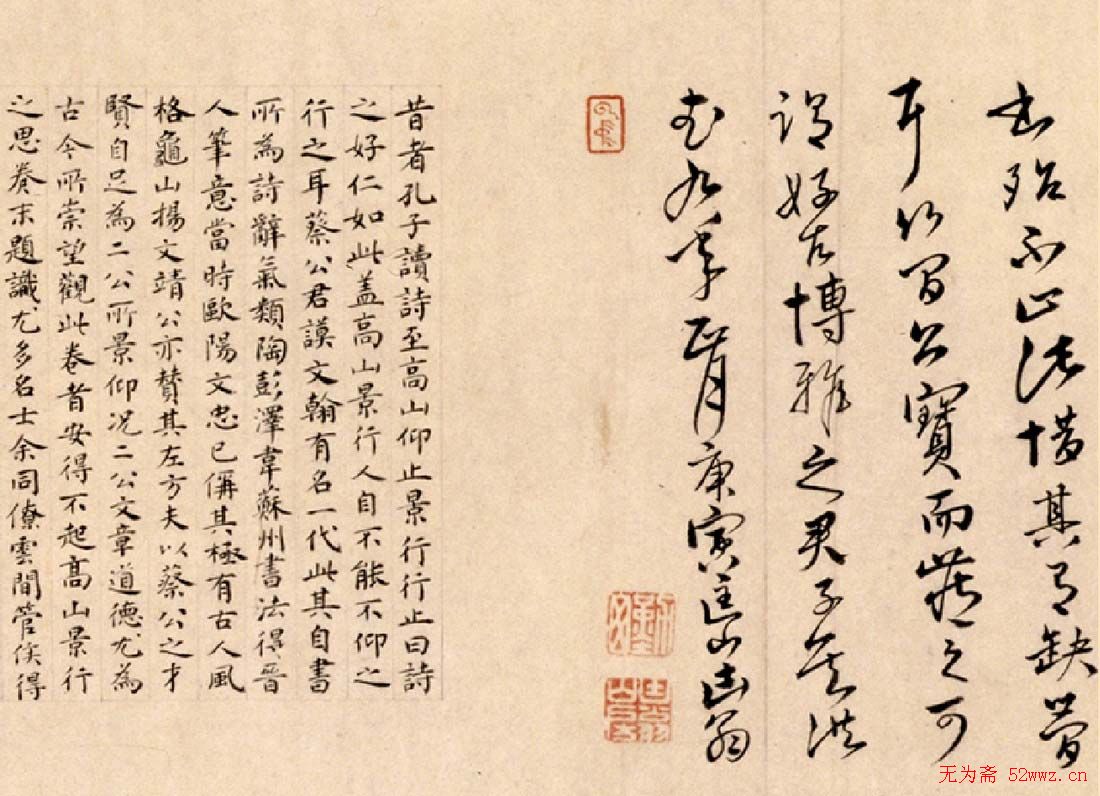 出殆不止此惜其多缺簡
耳竹間公寶而藏之可
謂好古博雅之君子矣洪
武九年正月庚寅匡山
昔者孔子讀詩至高山仰止景行行止曰詩
之好仁如此盖高山景行人自不能不仰之
行之耳蔡公君謨文翰有名一代此其自書
所為詩辭氣類陶彭澤韋蘇州書法得晉
人筆意當時歐陽文忠已偁其極有古人風
格龜山楊文靖公亦賛其左方夫以蔡公之才
賢自足為二公所景仰况二公文章道德尤為
古今所崇望觀此卷者安得不起高山景行
之思卷末題識尤多名士余同僚雲間管侯得
无为斋 52wwz.cn